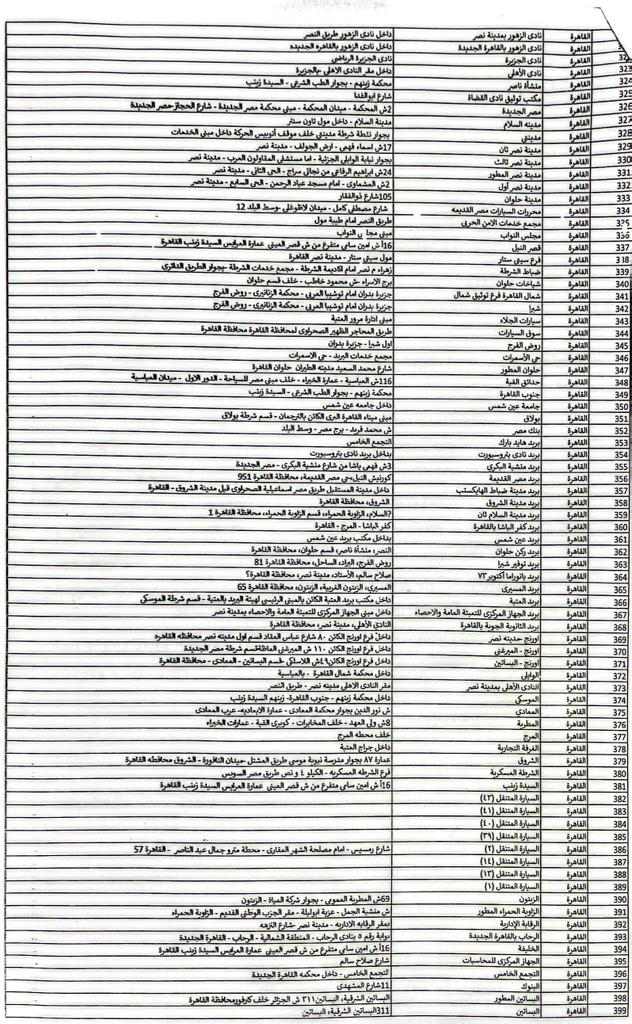 القاهرة نادى الزهور بمدينة نصر داخل نادى الزهور طريق النصر
القاهرة نادى الزهور بالقاهرة الجديدة داخل نادى الزهور بالقاهره الجديده
القاهرة نادى الجزيرة نادى الجزيرة الرياضي
323 القاهرة نادى الأهلي داخل مقر النادى الاهلى -بالجزيرة
324 القاهرة منشأة ناصر محكمة زينهم - بجوار الطب الشرعى - السيدة زينب
325 القاهرة مكتب توثيق نادى القضاة شارع ابوالفدا
326 القاهرة مصر الجديدة 2ش المحكمة - ميدان المحكمة - مبنى محكمة مصر الجديدة - شارع الحجاز-مصر الجديدة
327 القاهرة مدينه السلام مدينة السلام - داخل مول تاون سنتر
328 القاهرة مدينتي بجوار نقطة شرطة مدينتي خلف موقف أتوبيس الحركة داخل مبنى الخدمات
329 القاهرة مدينة نصر ثان 17ش اسماء فهمى - ارض الجولف - مدينة نصر
330 القاهرة مدينة نصر ثالث بجوار نيابة الوايلى الجزئية - اما مستشفى المقاولون العرب - مدينة نصر
331 القاهرة مدينة نصر المطور 24ش ابراهيم الرفاعى من نجاتى سراج - الحى الثانى - مدينة نصر
332 القاهرة مدينة نصر أول 2ش المشماوى - امام مسجد عباد الرحمن - الحى السابع - مدينة نصر
333 القاهرة مدينة حلوان 105شارع ذوالفقار
334 القاهرة محررات السيارات مصر القديمه شارع مصطفى كامل - ميدان لاظوغلى -وسط البلد 12
335 القاهرة مجمع خدمات الامن الحربى طريق النصر امام طيبة مول
336 القاهرة مجلس النواب مبنى مجلس النواب
337 القاهرة قصر النيل 16أ ش امين سامى متفرع من ش قصر العينى عمارة العرايس السيدة زينب القاهرة
338 القاهرة فرع سيتى ستار مول سيتى ستار - مدينة نصر القاهرة
339 القاهرة ضباط الشرطة زهراء م نصر امام اكاديمة الشرطة - مجمع خدمات الشرطة -بجوار الطريق الدائرى
340 القاهرة شياخات حلوان برج الاسراء -ش محمود خاطب - خلف قسم حلوان
341 القاهرة شمال القاهرة فرع توثيق شمال جزيرة بدران امام توشيبا العربى - محكمة الزنانيرى - روض الفرج
342 القاهرة شبرا جزيرة بدران امام توشيبا العربى - محكمة الزنانيرى - روض الفرج
343 القاهرة سيارات الجلاء مبنى ادارة مرور العتبة
344 القاهرة سوق السيارات طريق المحاجر الظهير الصحراوى لمحافظة القاهرة محافظة القاهرة
345 القاهرة روض الفرج اول شبرا - جزيرة بدران
346 القاهرة حي الأسمرات مجمع خدمات البريد - حى الاسمرات
347 القاهرة حلوان المطور شارع محمد السعيد مدينه الطيران حلوان القاهرة
348 القاهرة حدائق القبة 116ش العباسية - عمارة الخبراء - خلف مبنى مصر للسياحة - الدور الاول - ميدان العباسية
349 القاهرة جنوب القاهرة محكمة زينهم - بجوار الطب الشرعى - السيدة زينب
350 القاهرة جامعة عين شمس داخل جامعه عين شمس
351 القاهرة بولاق مبنى ميناء القاهرة البرى الكائن بالترجمان - قسم شرطة بولاق
352 القاهرة بنك مصر ش محمد فريد - برج مصر - وسط البلد
353 القاهرة بريد هايد بارك التجمع الخامس
354 القاهرة بريد نادى بتروسبورت بداخل بريد نادى بتروسبورت
355 القاهرة بريد منشية البكرى 3ش فهمى باشا من شارع منشية البكرى - مصر الجديدة
356 القاهرة بريد مصر القديمة كورنيش النيل،حى مصر القديمة، محافظة القاهرة 951
357 القاهرة بريد مدينة ضباط الهايكستب داخل مدينة المستقبل طريق مصر اسماعيلية الصحراوى قبل مدينة الشروق - القاهرة
358 القاهرة بريد مدينة الشروق الشروق، محافظة القاهرة
359 القاهرة بريد مدينة السلام ثان ?السلام، الزاوية الحمراء، قسم الزاوية الحمراء، محافظة القاهرة 1
360 القاهرة بريد كفر الباشا بالقاهرة كفر الباشا - المرج - القاهرة
361 القاهرة بريد عين شمس بداخل مكتب بريد عين شمس
362 القاهرة بريد ركن حلوان النصر، منشأة ناصر، قسم حلوان، محافظة القاهرة
363 القاهرة بريد توفير شبرا روض الفرج، البراد، الساحل، محافظة القاهرة 81
364 القاهرة بريد بانوراما أكتوبر ٧٣ صلاح سالم، الأستاد، مدينة نصر، محافظة القاهرة?
365 القاهرة بريد المسيرى المسيرى، الزيتون الغربية، الزيتون، محافظة القاهرة 65
366 القاهرة بريد العتبة داخل مكتب بريد العتبة الكائن بالمبنى الرئيسى لهيئة البريد بالعتبة - قسم شرطة الموسكى
367 القاهرة بريد الجهاز المركزى للتعبئة العامة والاحصاء داخل مبنى الجهاز المركزى للتعبئة العامة والاحصاء بمدينة نصر
368 القاهرة بريد الثانوية الجوية بالقاهرة النادى الأهلى، مدينة نصر، محافظة القاهرة
369 القاهرة اورنج حديثه نصر داخل فرع اورنج الكائن ٨٠ شارع عباس العقاد قسم اول مدينه نصر محافظه القاهره
370 القاهرة اورنج - الميرغنى داخل فرع اورنج الكائن ١١٠ ش الميرغنى الماظةقسم شرطة مصر الجديدة
371 القاهرة اورنج - البساتين داخل فرع اورنج الكائن٩ش اللاسلكى -قسم البساتين - المعادى - محافظة القاهرة
372 القاهرة الوايلى داخل محكمة شمال القاهرة - بالعباسية
373 القاهرة النادى الأهلى بمدينة نصر مقر النادى الاهلى مدينه نصر - طريق النصر
374 القاهرة الموسكى داخل محكمة زينهم - جنوب القاهرة- زينهم السيدة زينب
375 القاهرة المعادى ش نور الدين بجوار محكمة المعادى - عمارة الابعاديه- عرب المعادى
376 القاهرة المطرية 8ش ولى العهد - خلف المخابرات - كوبرى القبة - عمارات الخبراء
377 القاهرة المرج خلف محطه المرج
378 القاهرة الغرفة التجارية داخل جراج العتبة
379 القاهرة الشروق عمارة ٨٧ بجوار مدرسة نبوية موسى طريق المشتل -ميدان النافورة - الشروق محافظه القاهرة
380 القاهرة الشرطة العسكرية فرع الشرطه العسكريه - الكيلو ٤ و نص طريق مصر السويس
381 القاهرة السيدة زينب 16أ ش امين سامى متفرع من ش قصر العينى عمارة العرايس السيدة زينب القاهرة
382 القاهرة السيارة المتنقل (٤٢)
383 القاهرة السيارة المتنقل (٤١)
384 القاهرة السيارة المتنقل (٤٠)
385 القاهرة السيارة المتنقل (٣٩)
386 القاهرة السيارة المتنقل (٢) شارع رمسيس - امام مصلحة الشهر العقارى - محطة مترو جمال عبد الناصر - القاهرة 57
387 القاهرة السيارة المتنقل (١٤)
388 القاهرة السيارة المتنقل (١٣)
389 القاهرة السيارة المتنقل (١)
390 القاهرة الزيتون 69ش المطرية العمومى - بجوار شركة المياة - الزيتون
391 القاهرة الزاوية الحمراء المطور ش منشية الجمل - عزبة ابوليلة - مقر الحزب الوطنى القديم - الزاوية الحمراء
392 القاهرة الرقابة الإدارية بمقر الرقابه الاداريه - مدينة نصر -شارع النزهه
393 القاهرة الرحاب بالقاهرة الجديدة بوابة رقم ٥ بنادى الرحاب - المنطقة الشمالية - الرحاب - القاهرة الجديدة
394 القاهرة الخليفة 16أ ش امين سامى متفرع من ش قصر العينى عمارة العرايس السيدة زينب القاهرة
395 القاهرة الجهاز المركزى للمحاسبات شارع صلاح سالم
396 القاهرة التجمع الخامس التجمع الخامس - داخل محكمه القاهرة الجديدة
397 القاهرة البنوك 11شارع المشهدى
398 القاهرة البساتين المطور البساتين الشرقية، البساتين٣١١ ش الجزائر خلف كارفورمحافظة القاهرة
399 القاهرة البساتين 311البساتين الشرقية، البساتين